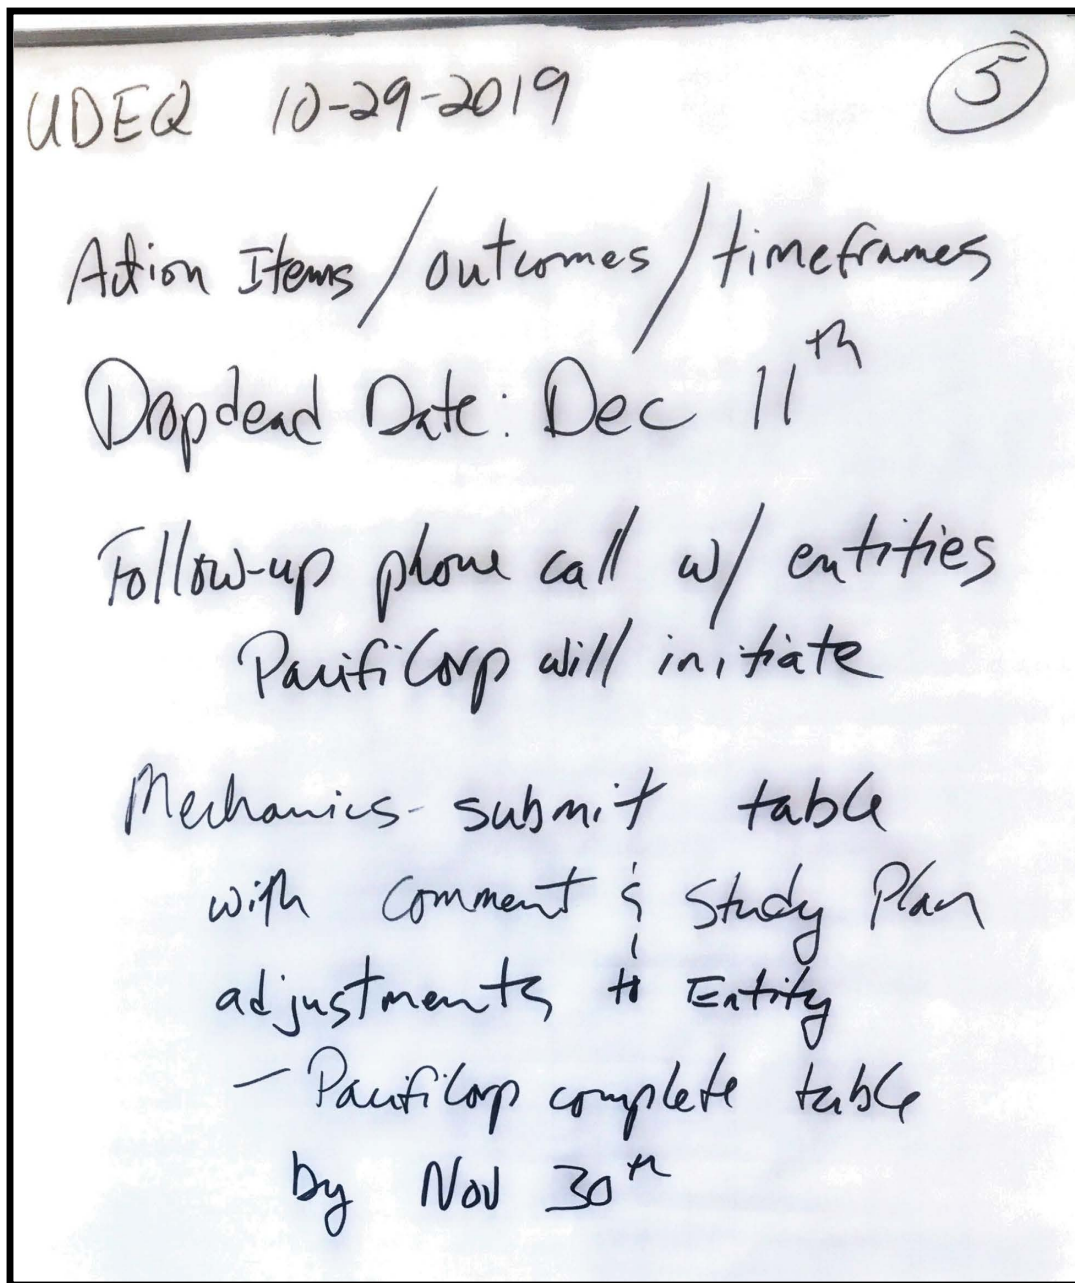 UDEQ 10-29-2019 5
Action Items / outcomes / timeframes
Dropdead Date: Dec 11th
Follow-up phone call w/ entities
PacifiCorp will initiate
Mechanics - submit table
with comment & Study Plan
adjustments to Entity
- PacifiCorp complete table
by Nov 30th